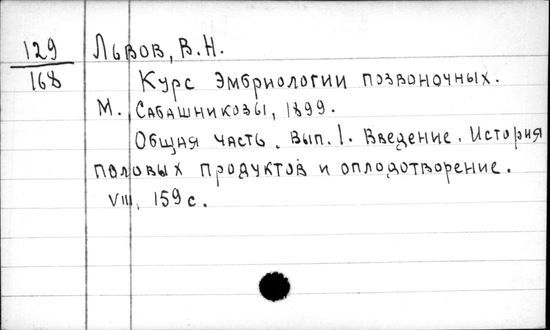 129
168
Львов, В.Н.
Курс Эмбриологии позвоночных.
М., Сабашниковы, 1899.
Общая часть. Вып. 1. Введение. История
половых продуктов и оплодотворение.
VIII, 159 с.